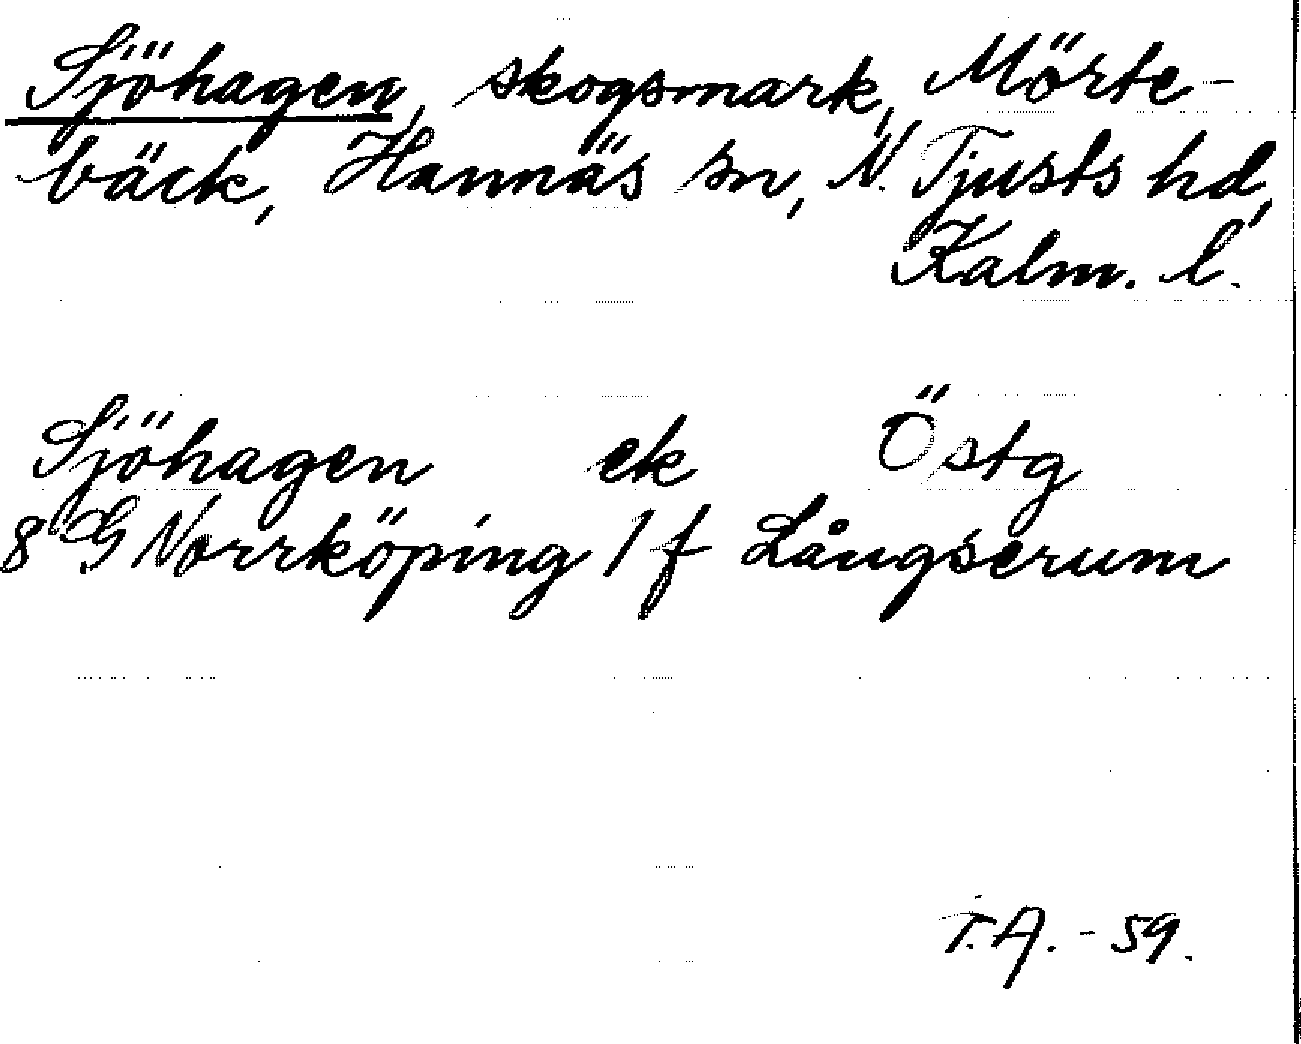 Sjöhagen, skogsmark, Mörte-
bäck, Hannäs sn, N. Tjusts hd,
Kalm. l.
Sjöhagen ek Östg
8 G Norrköping 1 f Långserum
T.A. - 59.